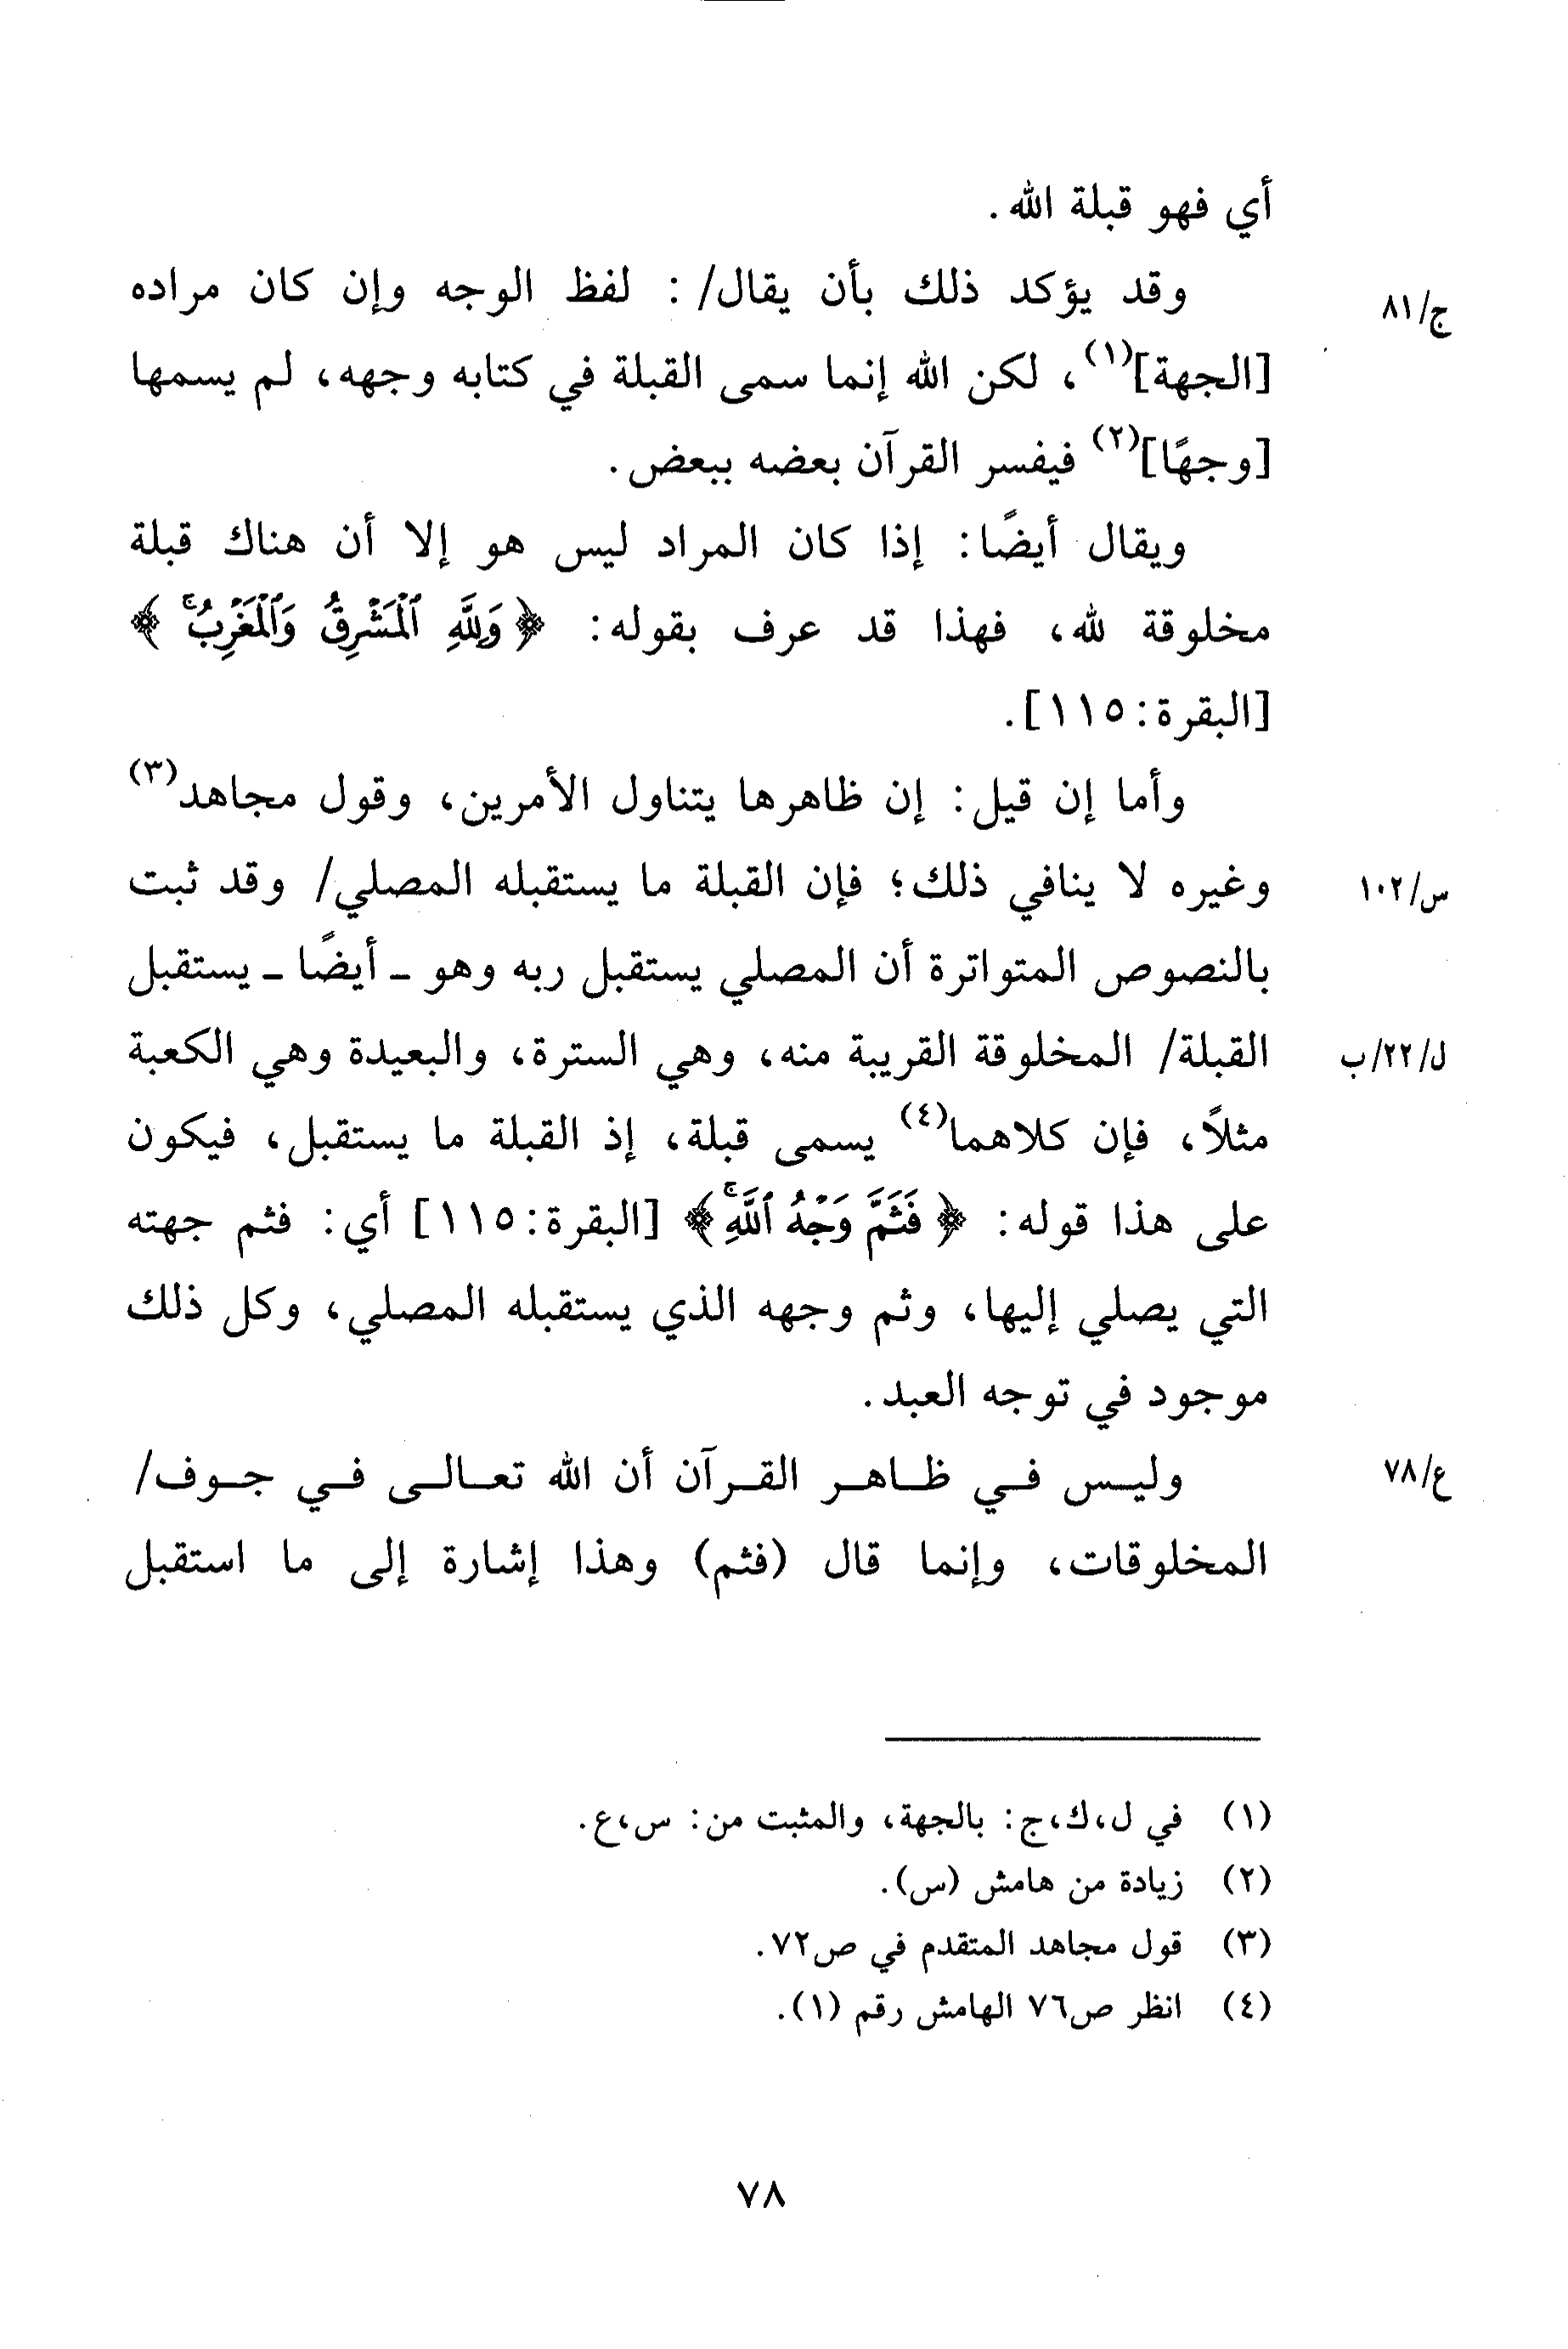 أي فهو قبلة الله.
وقد يؤكد ذلك بأن يقال/ : لفظ الوجه وإن كان مراده
ج/٨١
[الجهة](١)، لكن الله إنما سمى القبلة في كتابه وجهه، لم يسمها
[وجهًا](٢) فيفسر القرآن بعضه ببعض.
ويقال أيضًا: إذا كان المراد ليس هو إلا أن هناك قبلة
مخلوقة لله، فهذا قد عرف بقوله: ﴿ وَلِلَّهِ ٱلْمَشْرِقُ وَٱلْمَغْرِبُ ۚ ﴾
[البقرة: ١١٥].
وأما إن قيل: إن ظاهرها يتناول الأمرين، وقول مجاهد(٣)
وغيره لا ينافي ذلك؛ فإن القبلة ما يستقبله المصلي/ وقد ثبت
س/١٠٢
بالنصوص المتواترة أن المصلي يستقبل ربه وهو ـ أيضًا ـ يستقبل
القبلة/ المخلوقة القريبة منه، وهي السترة، والبعيدة وهي الكعبة
ل/٢٢/ب
مثلاً، فإن كلاهما(٤) يسمى قبلة، إذ القبلة ما يستقبل، فيكون
على هذا قوله: ﴿ فَثَمَّ وَجْهُ ٱللَّهِ ۚ ﴾ [البقرة: ١١٥] أي: فثم جهته
التي يصلي إليها، وثم وجهه الذي يستقبله المصلي، وكل ذلك
موجود في توجه العبد.
وليس في ظاهر القرآن أن الله تعالى في جوف/
ع/٧٨
المخلوقات، وإنما قال (فثم) وهذا إشارة إلى ما استقبل
(١) في ل،ك،ج: بالجهة، والمثبت من: س،ع.
(٢) زيادة من هامش (س).
(٣) قول مجاهد المتقدم في ص٧٢.
(٤) انظر ص٧٦ الهامش رقم (١).
٧٨